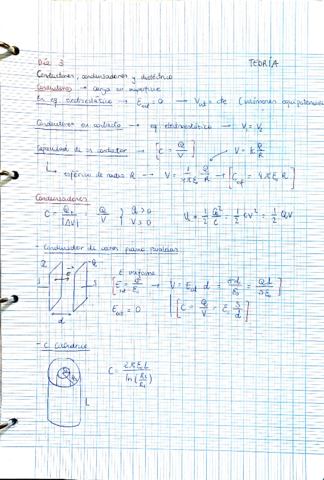 Día 3 TEORÍA
Conductores, condensadores y dieléctrico
Conductores → carga en superficie
En eq electrostático → E_int = 0 → V_int = cte (volúmenes equipotenciales)
Conductores en contacto → eq electrostático → V₁ = V₂
Capacidad de un conductor → [C = Q/V] V = k Q/R
↳ esférico de radio R → V = 1/(4πε₀) Q/R → [C_esf = 4πε₀ R]
Condensadores
C = Q₁/|ΔV| = Q/V } Q > 0 V > 0 U = 1/2 Q²/C = 1/2 CV² = 1/2 QV
- Condensador de caras plano paralelas
Q -Q E uniforme
[E_int = σ/ε₀ → V = E_int d = σd/ε₀ = Qd/Sε₀]
S S
E_ext = 0 [C = Q/V = ε₀ S/d]
d
- C Cilíndrico
C = 2πε₀L / ln(R₂/R₁)
L